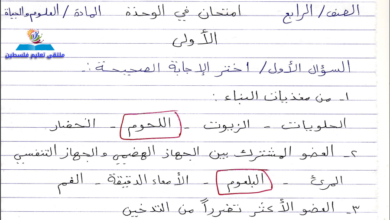 الصف/ الرابع امتحان في الوحدة المادة/ العلوم والحياة
الأولى
ملتقى تعليم فلسطين
السؤال الأول/ اختر الإجابة الصحيحة :
١- من مغذيات البناء :
الحلويات - الزيوت - اللحوم - الخضار
٢- العضو المشترك بين الجهاز الهضمي والجهاز التنفسي
المرئ - البلعوم - الأمعاء الدقيقة - الفم
٣- العضو الأكثر تضرراً من التدخين